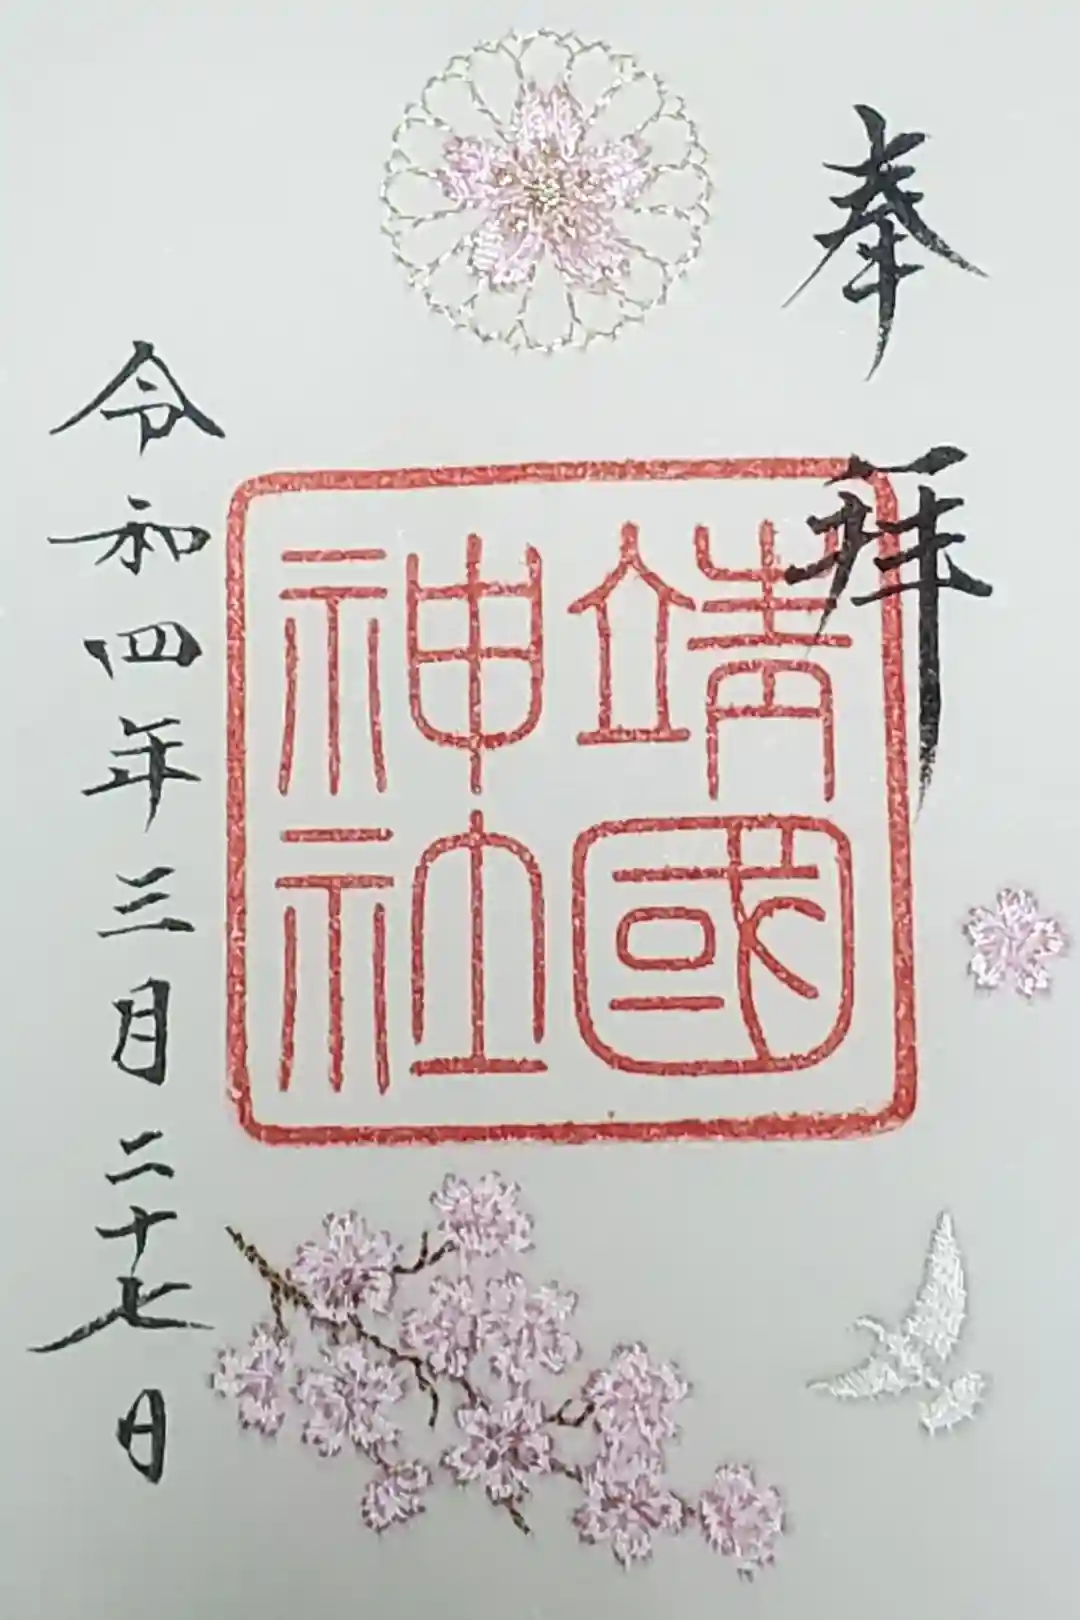 奉拝
靖國
神社
令和四年三月二十七日